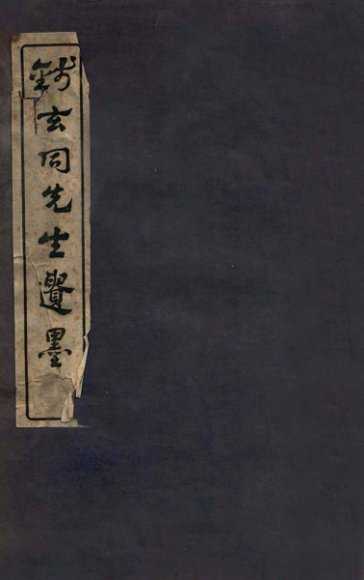 錢玄同先生遺墨